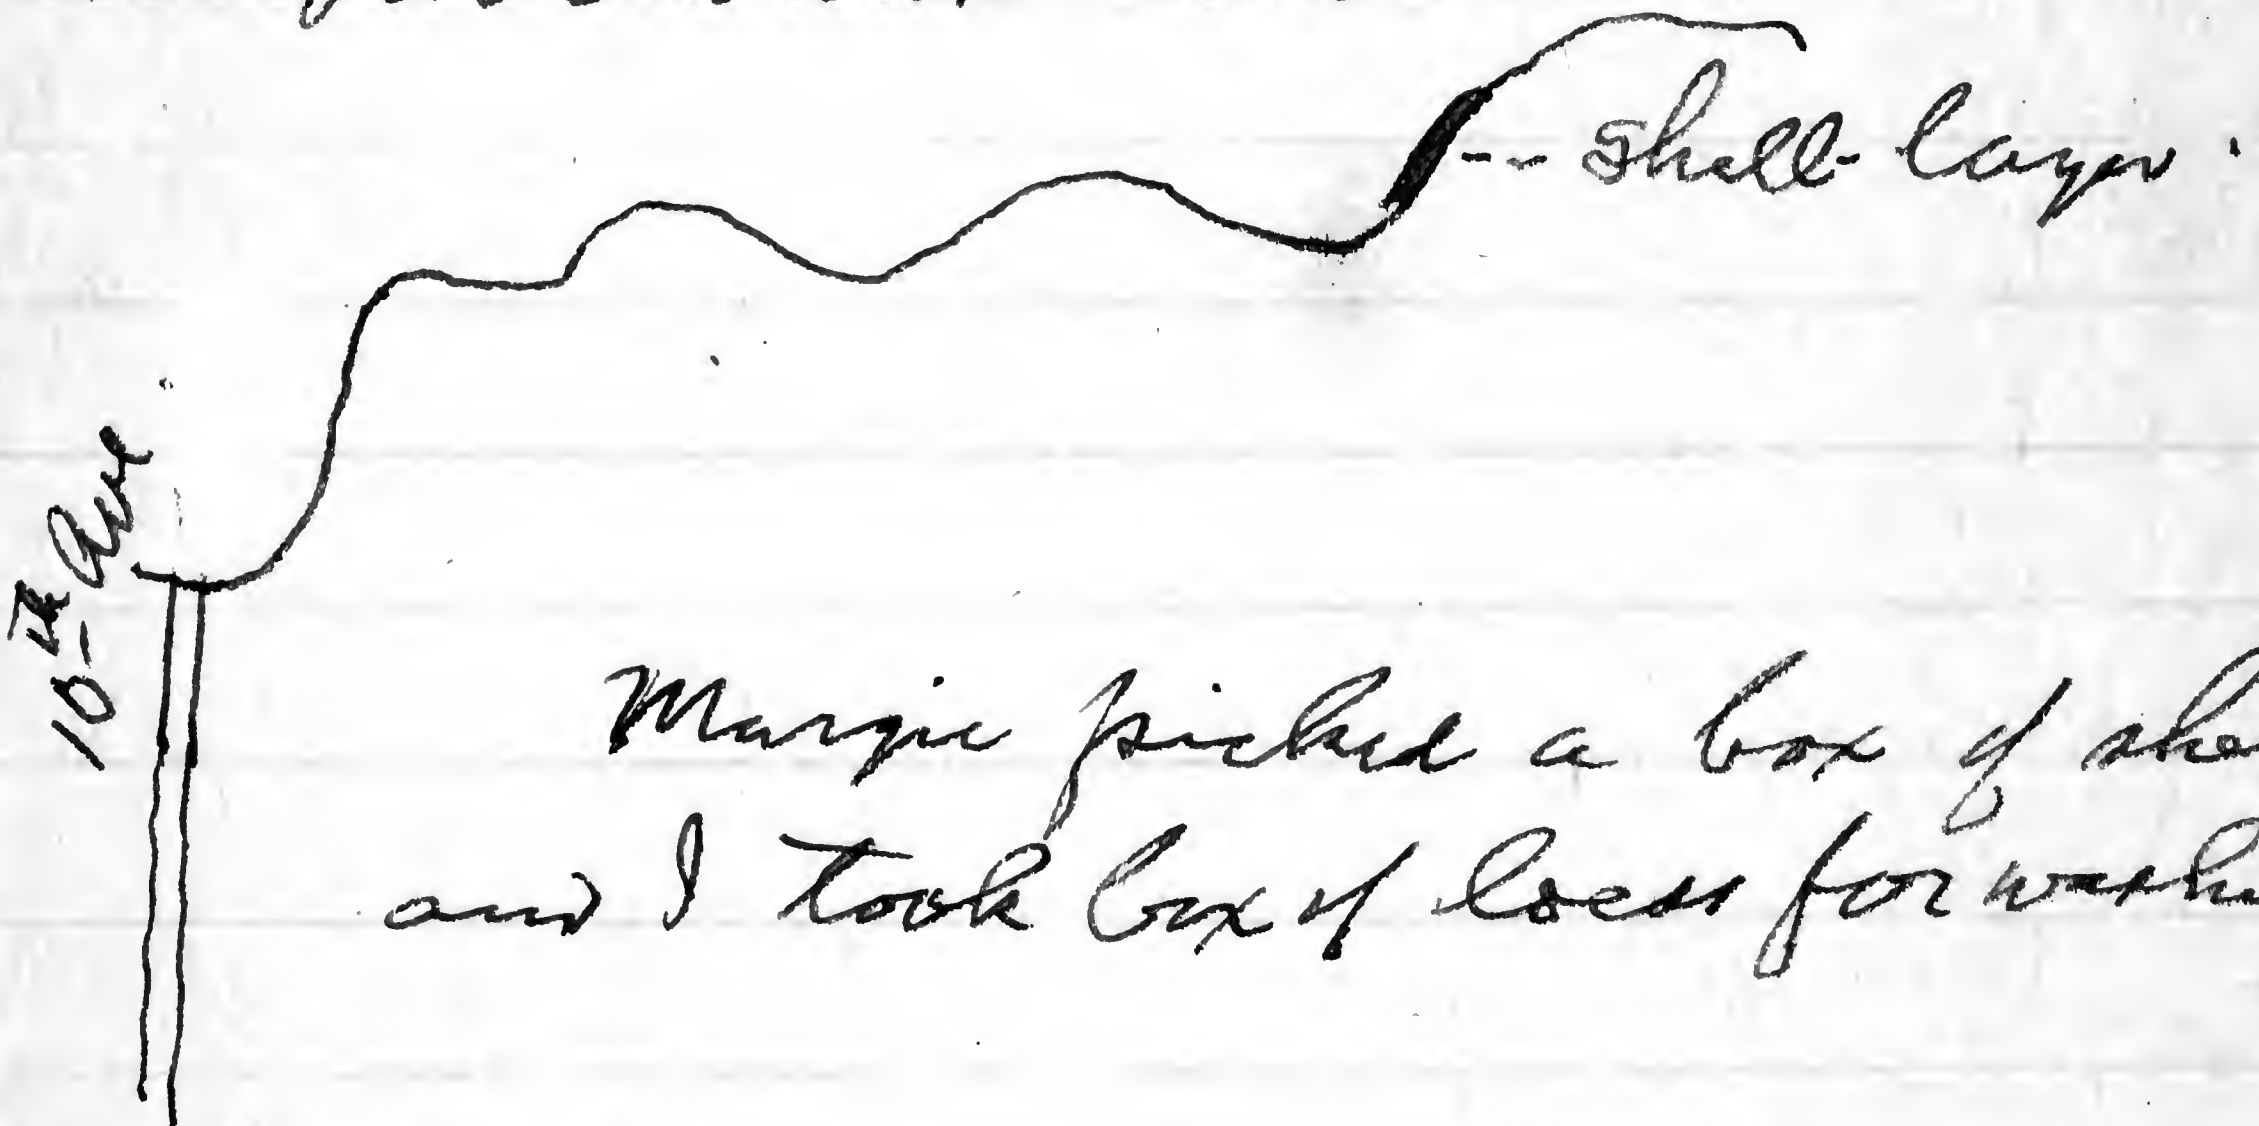 -- shell-layer.
10th Ave
Margie picked a box of she
and I took box of loess for washi